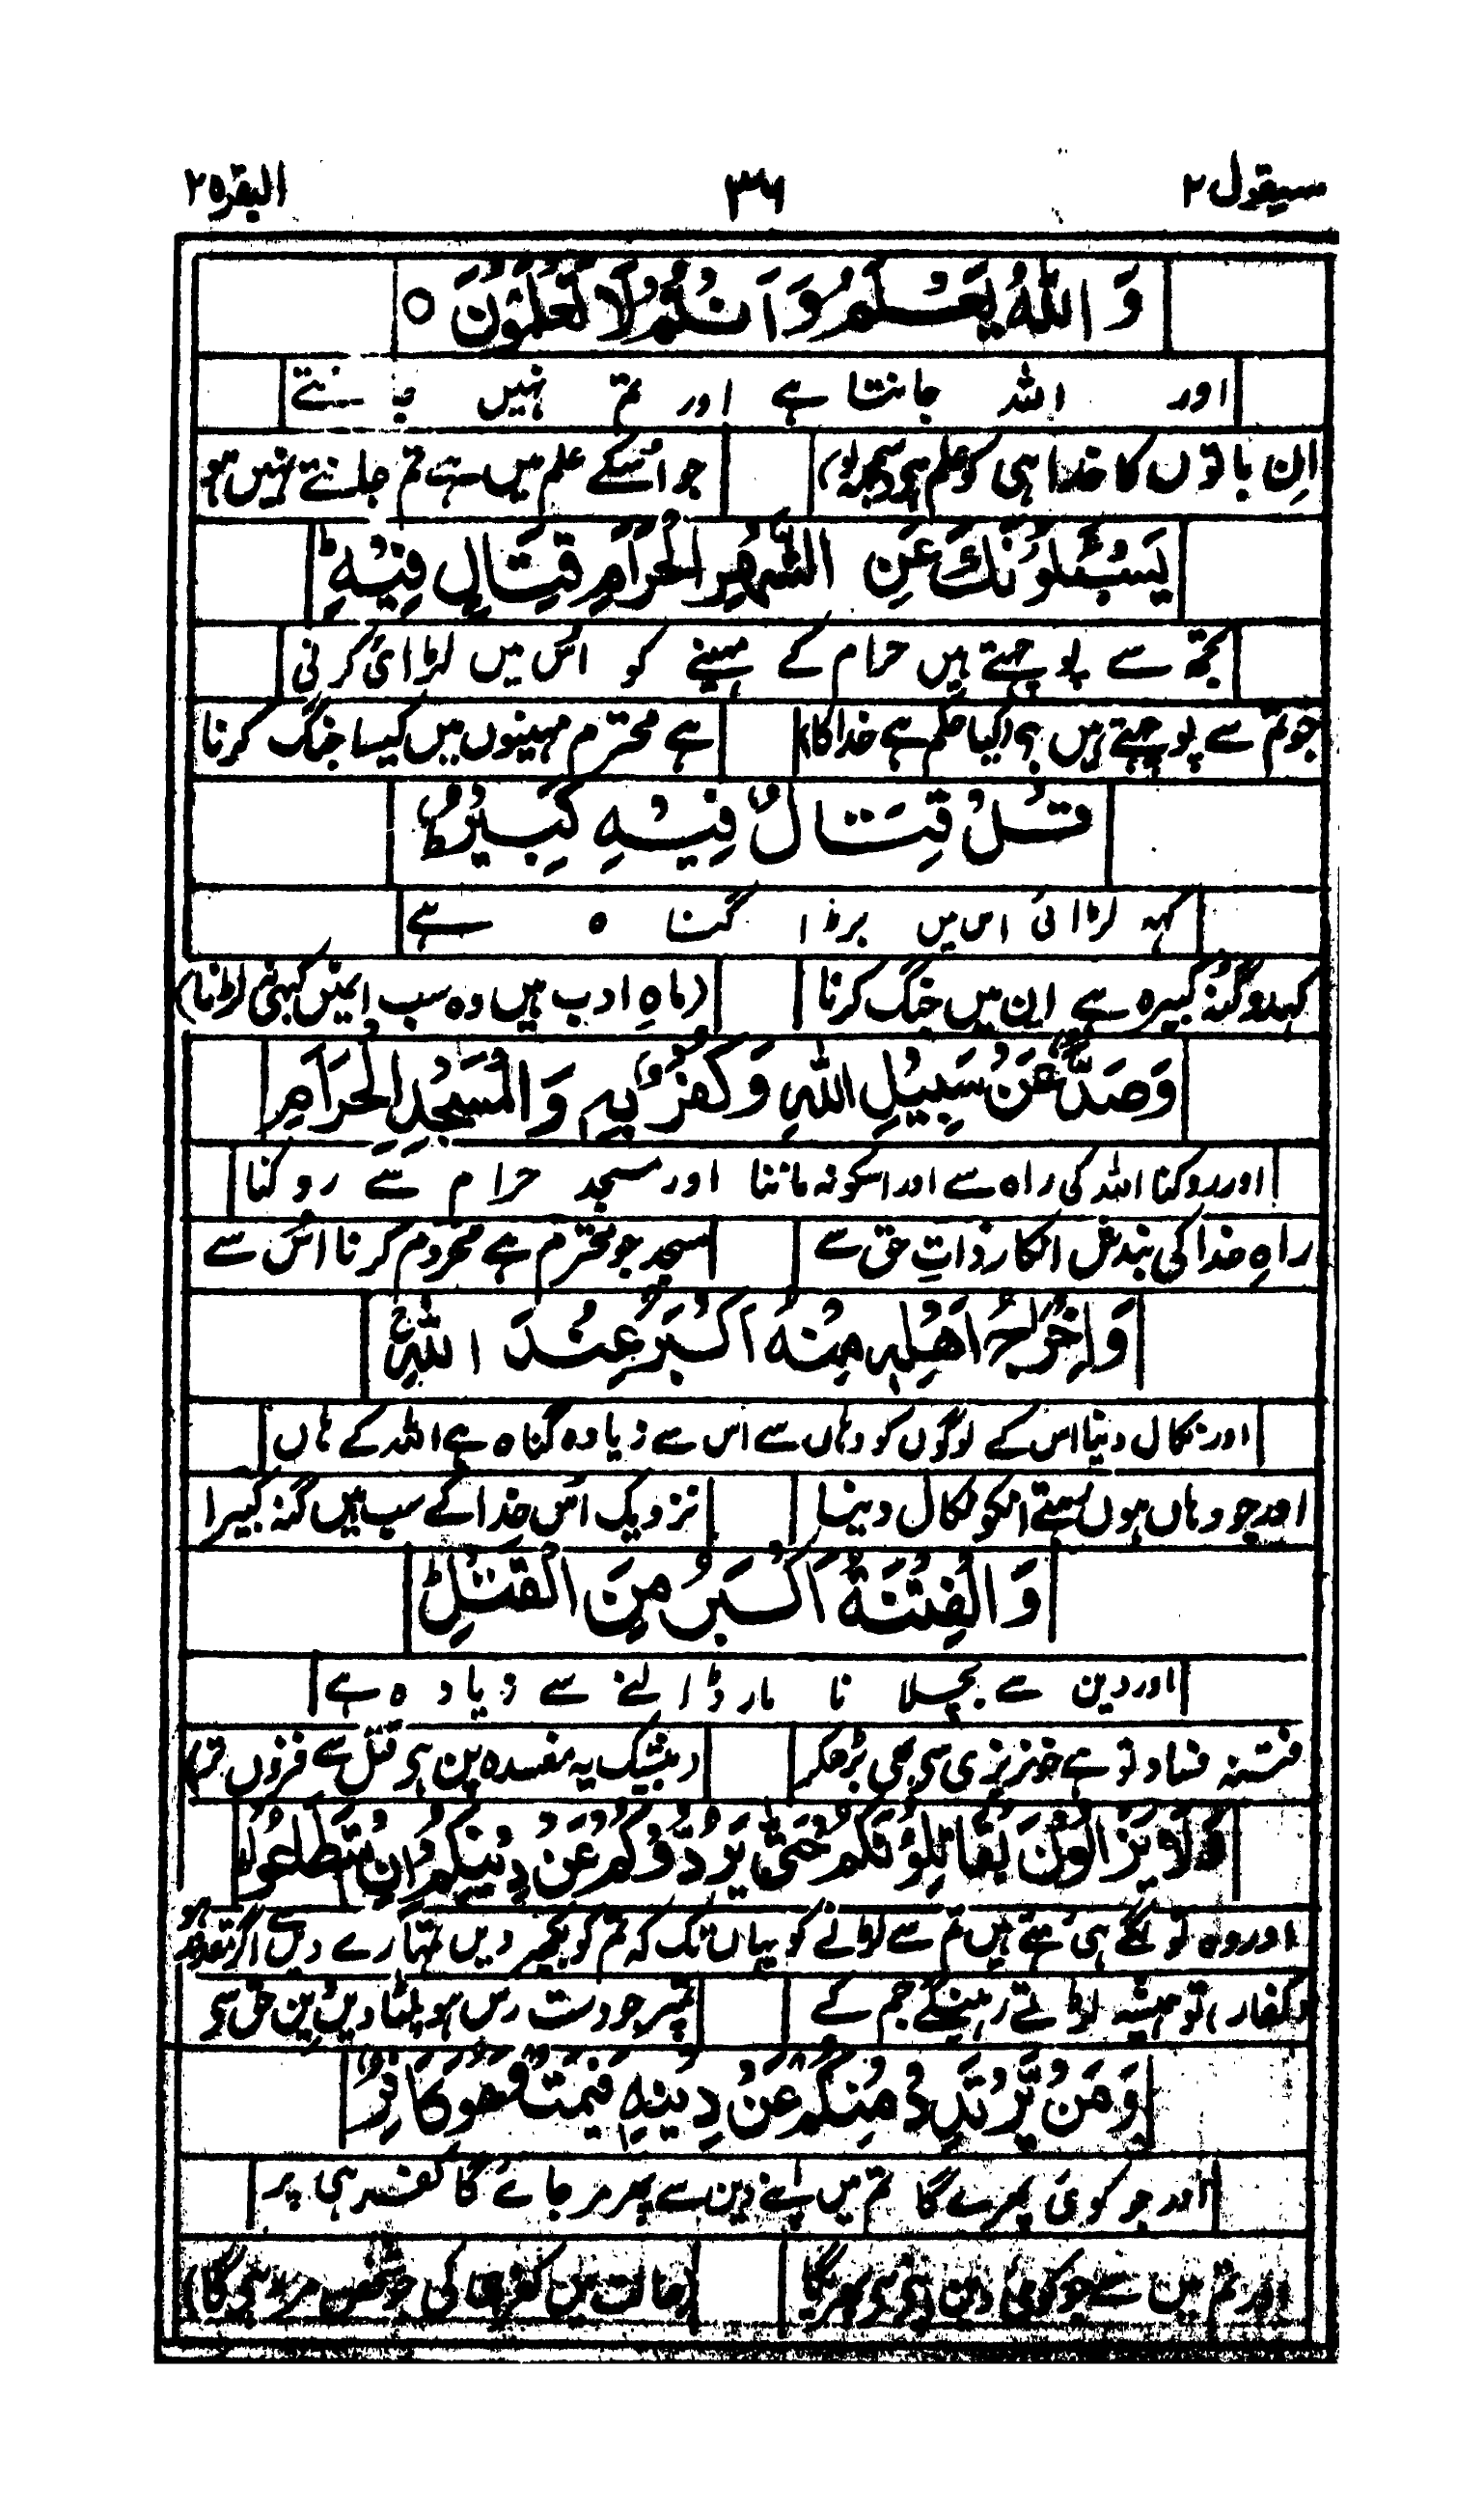 سیقول ۲ ۳۶ البقرہ ۲
وَاللّٰهُ يَعْلَمُ وَاَنْتُمْ لَا تَعْلَمُوْنَ ○
اور اللہ جانتا ہے اور تم نہیں جانتے
اِن باتوں کا خدا ہی کو علم ہے جو اُسکے علم میں ہے تم جانتے نہیں ہو
يَسْـَٔلُوْنَكَ عَنِ الشَّهْرِ الْحَرَامِ قِتَالٍ فِيْهِ ؕ
تجھ سے پوچھتے ہیں حرام کے مہینے کو اُس میں لڑائی کرنی
جو تم سے پوچھتے ہیں ؟ (کیا حکم ہے خدا کا) ہے محترم مہینوں میں کیسا جنگ کرنا
قُلْ قِتَالٌ فِيْهِ كَبِيْرٌ ؕ
کہہ لڑائی اس میں بڑا گناہ ہے
کہدو گنہ کبیرہ ہے ان میں جنگ کرنا (ماہِ ادب ہیں وہ سب لڑنا)
وَصَدٌّ عَنْ سَبِيْلِ اللّٰهِ وَكُفْرٌۢ بِهٖ وَالْمَسْجِدِ الْحَرَامِ
اور روکنا اللہ کی راہ سے اور اسکو نہ ماننا اور مسجد حرام سے روکنا
راہِ خدا کی بندش انکار ذاتِ حق سے مسجد جو محترم ہے محروم کرنا اُس سے
وَاِخْرَاجُ اَهْلِهٖ مِنْهُ اَكْبَرُ عِنْدَ اللّٰهِ ۚ
اور نکال دینا اس کے لوگوں کو وہاں سے اس سے زیادہ گناہ ہے اللہ کے ہاں
اور جو وہاں ہوں بستے انکو نکال دینا نزدیک اُس خدا کے سب ہیں گنہ کبیرا
وَالْفِتْنَةُ اَكْبَرُ مِنَ الْقَتْلِ ؕ
اور دین سے بچلانا مار ڈالنے سے زیادہ ہے
فتنہ فساد تو ہے خونریزی سے بھی بڑھکر (بیشک یہ مفسدہ پن ہے قتل سے فزوں تر)
وَلَا يَزَالُوْنَ يُقَاتِلُوْنَكُمْ حَتّٰى يَرُدُّوْكُمْ عَنْ دِيْنِكُمْ اِنِ اسْتَطَاعُوْا
اور وہ تو لگے ہی رہتے ہیں تم سے لڑنے کو یہاں تک کہ تم کو پھیر دیں تمہارے دین سے اگر
(کفار) تو ہمیشہ لڑتے رہینگے جم کے دسترس ہو پلٹا دیں دینِ حق سے
وَمَنْ يَّرْتَدِدْ مِنْكُمْ عَنْ دِيْنِهٖ فَيَمُتْ وَهُوَ كَافِرٌ
اور جو کوئی پھرے گا تم میں اپنے دین سے پھر مر جائے گا کفر ہی پر
اور تم میں سے جو کوئی دین پھریگا (حالت میں کفر کی جو شخص